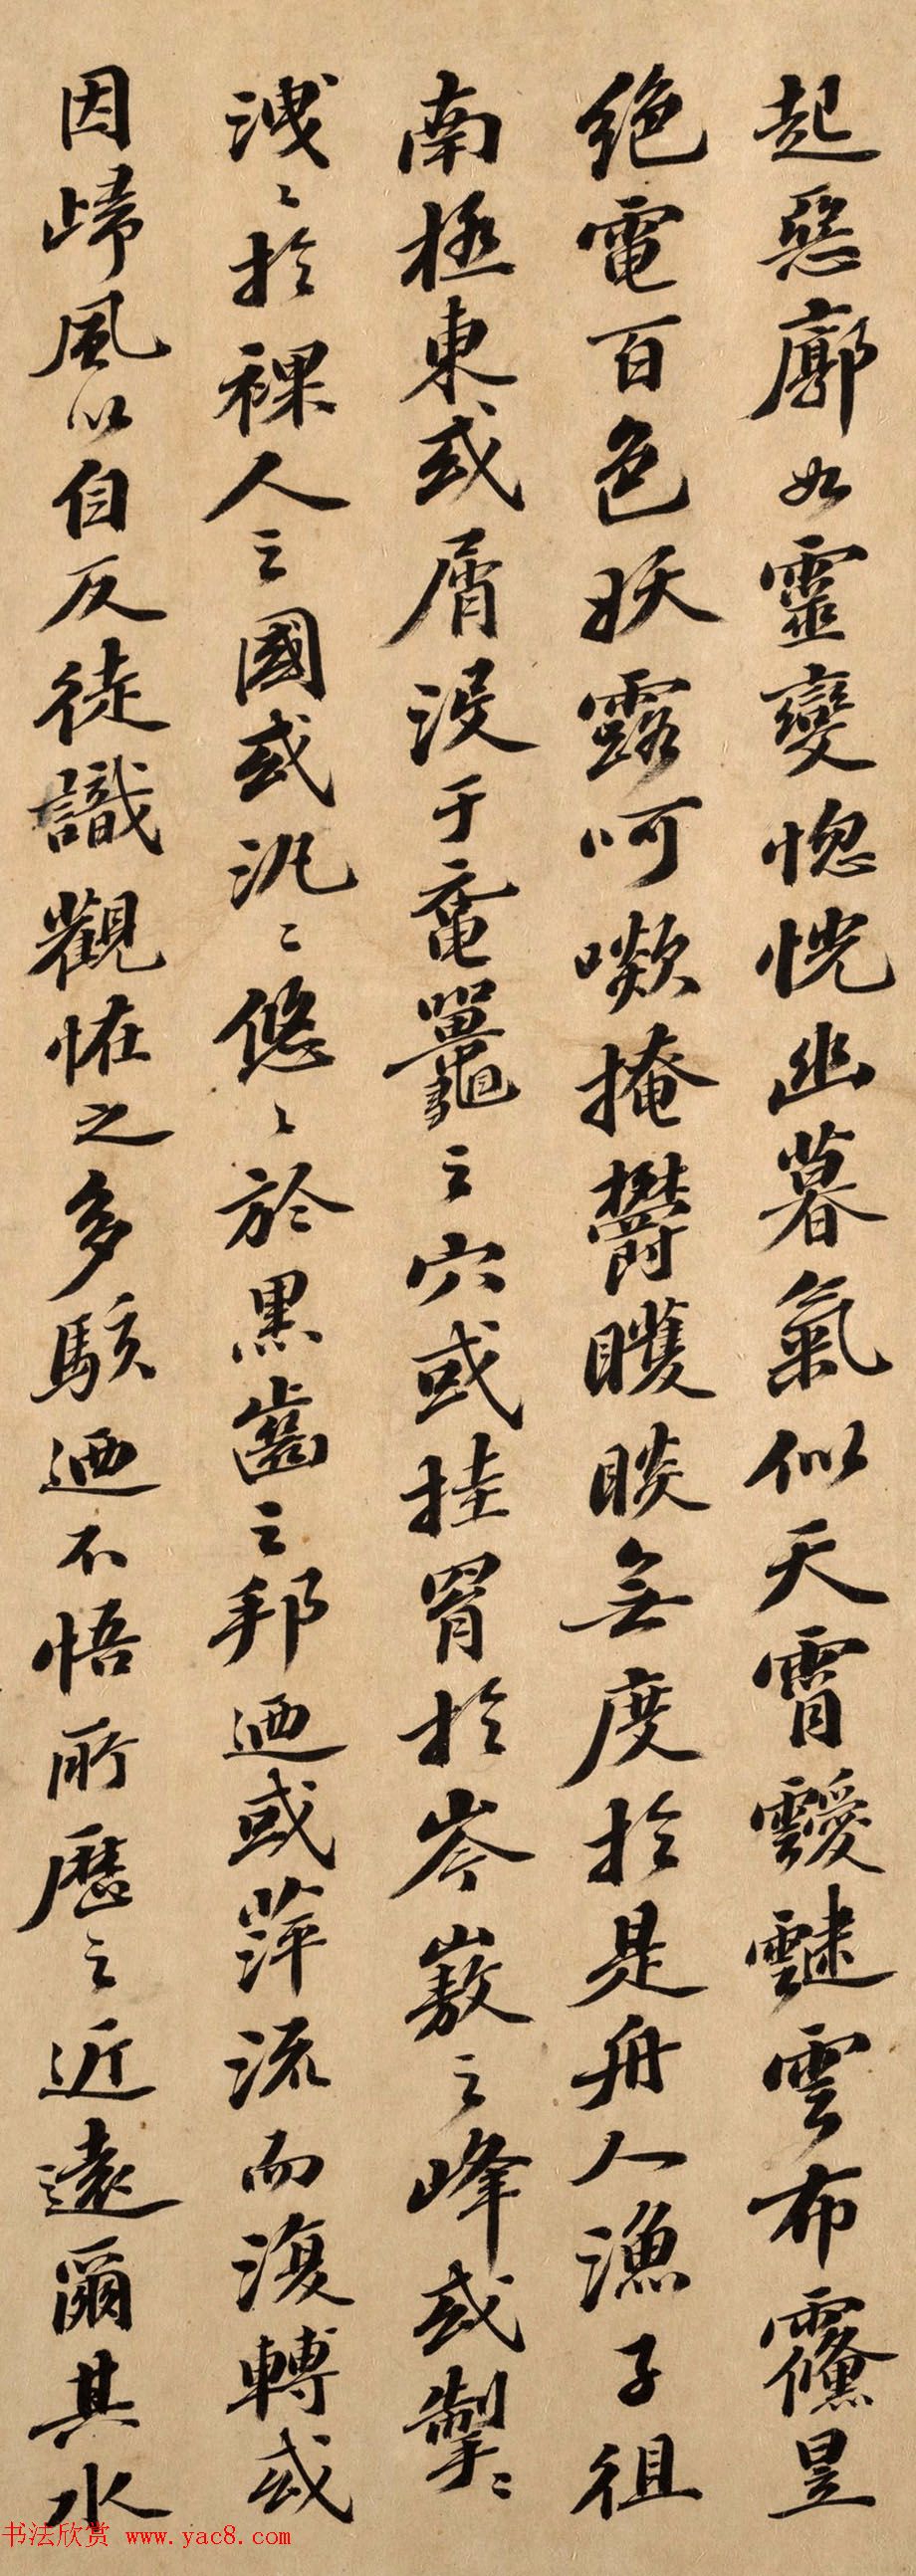 起惡廓如靈變惚恍幽暮氣似天霄靉靅雲布昱
絕電百色妖露呵掩鬱矆睒無度於是舟人漁子徂
南極東或屑沒于黿鼉之穴或挂罥於岑㟼之峰或掣〻
洩〻於裸人之國或汎〻悠〻於黑齒之邦迺或萍流而澓轉或
因歸風以自反徒識觀恠之多駭迺不悟所歷之近遠爾其水
书法欣赏 www.yac8.com